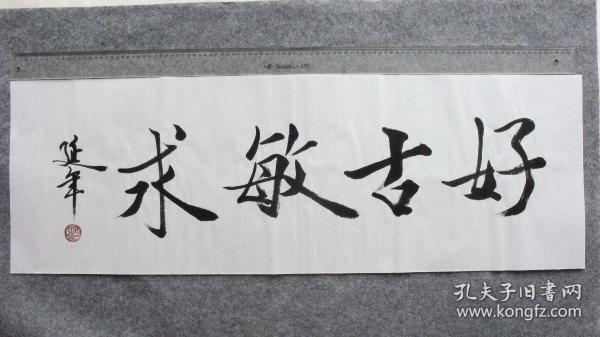 好古敏求
延年
孔夫子旧書网
www.kongfz.com